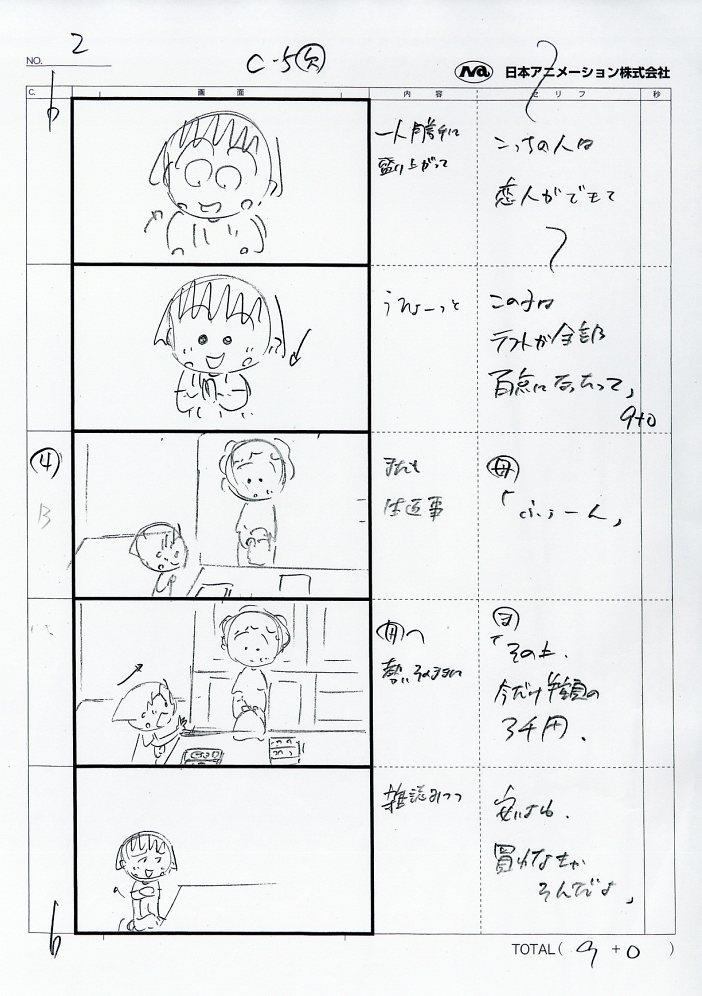 NO. 2
C-5 欠
Na 日本アニメーション株式会社
C. 画面 内容 セリフ 秒
一人勝手に
盛り上がって
こっちの人は
恋人ができて
うひょーっと
この子は
テストが全部
百点になったって」
9+0
4
B
またも
生返事
母
「ふぅーん」
母へ
勢いそのままに
ま
「その上、
今だけ半額の
3千円、
雑誌みつつ
安いよね、
買わなきゃ
そんだよ」
TOTAL( 9 + 0 )